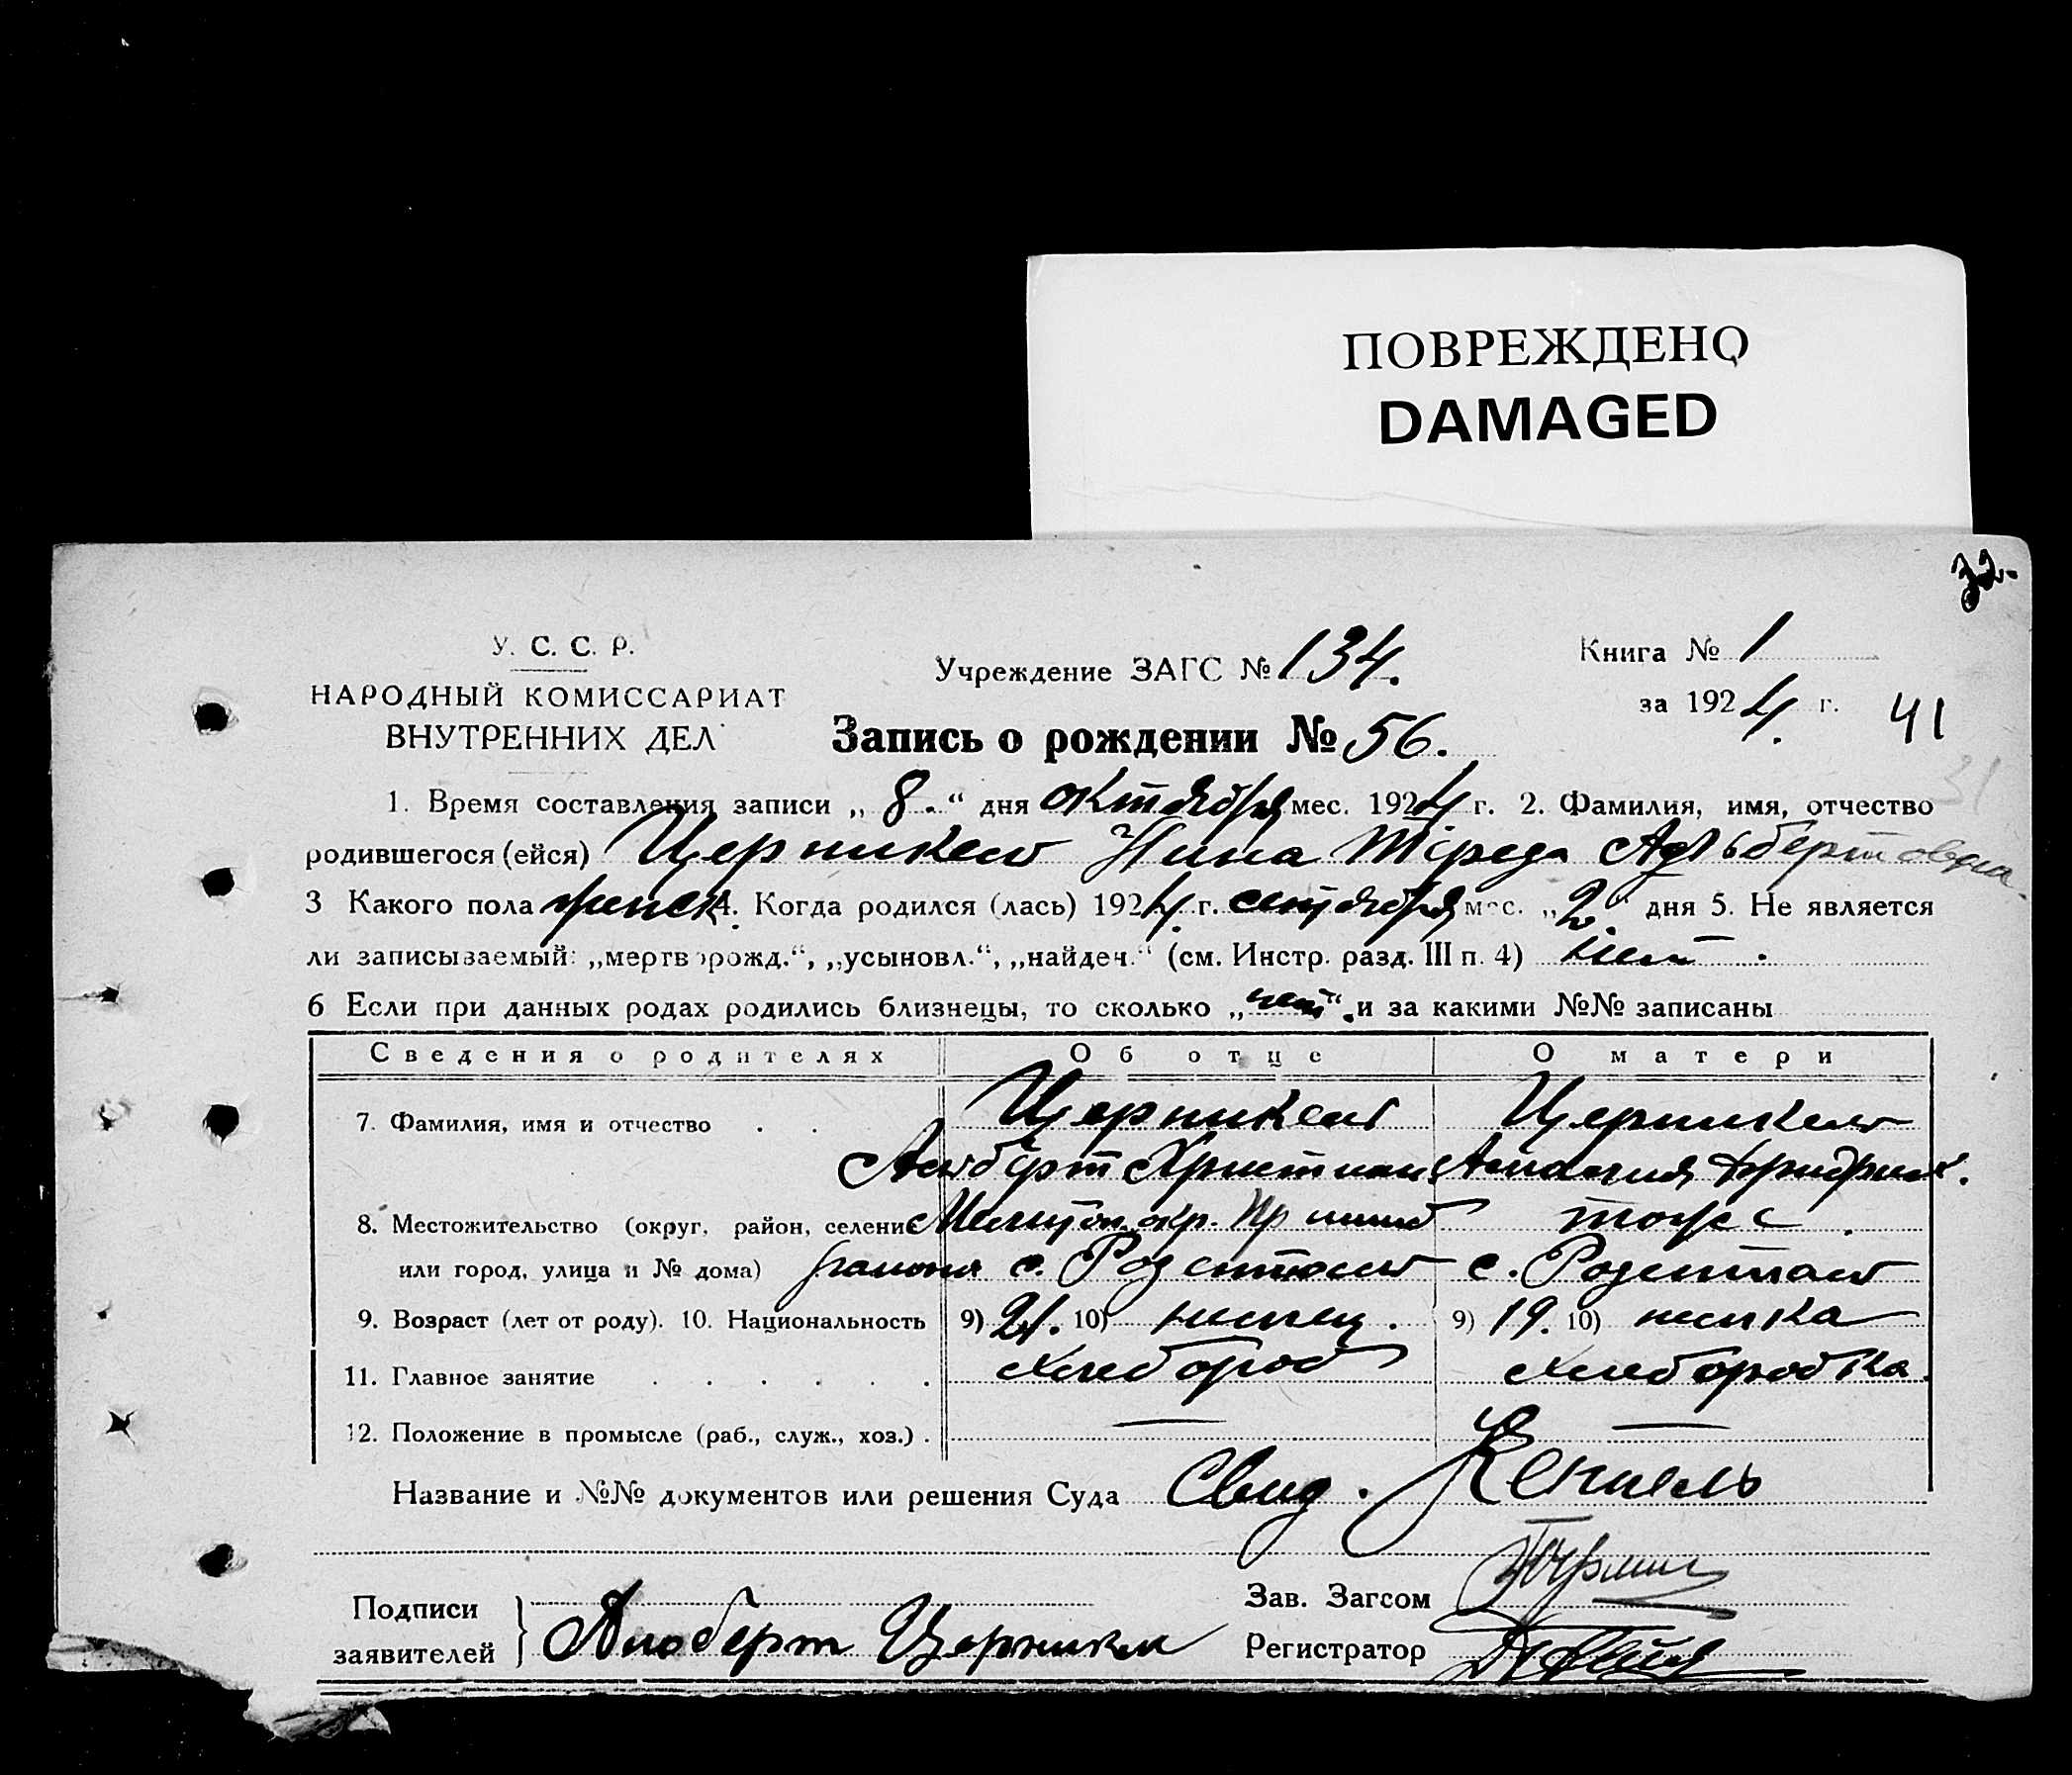 ПОВРЕЖДЕНО
DAMAGED
32.
У. С. С. Р.
НАРОДНЫЙ КОМИССАРИАТ
ВНУТРЕННИХ ДЕЛ
Учреждение ЗАГС № 134.
Книга № 1
за 1924 г.
41
31
Запись о рождении № 56.
1. Время составления записи „ 8. “ дня октября мес. 1924 г. 2. Фамилия, имя, отчество
родившегося (ейся) Церникель Нина Альбертовна
3 Какого пола женск. 4. Когда родился (лась) 1924 г. сентября мес. „2.“ дня 5. Не является
ли записываемый: „мертворожд.“, „усыновл.“, „найден.“ (см. Инстр. разд. III п. 4) нет.
6 Если при данных родах родились близнецы, то сколько „нет“. и за какими №№ записаны
Сведения о родителях Об отце О матери
7. Фамилия, имя и отчество . . Церникель Церникель
Альберт Христиан. Амалия Фридрих.
8. Местожительство (округ, район, селение Мелитоп. окр. Пришиб тоже
или город, улица и № дома) района с. Розенталь с. Розенталь
9. Возраст (лет от роду). 10. Национальность 9) 21. 10) немец. 9) 19. 10) немка
11. Главное занятие . . . . . . хлебороб хлеборобка.
12. Положение в промысле (раб., служ., хоз.) . — —
Название и №№ документов или решения Суда Свид.
Подписи
заявителей } Альберт Церникель
Зав. Загсом
Регистратор